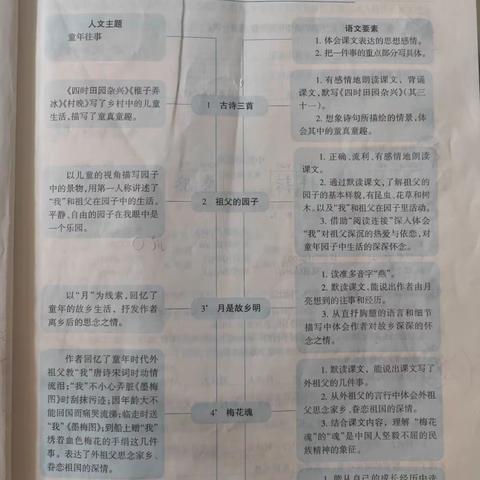 人文主题
童年往事
语文要素
1. 体会课文表达的思想感情。
2. 把一件事的重点部分写具体。
《四时田园杂兴》《稚子弄
冰》《村晚》写了乡村中的儿童
生活，描写了童真童趣。
1 古诗三首
1. 有感情地朗读课文，背诵
课文，默写《四时田园杂兴》（其三
十一）。
2. 想象诗句所描绘的情景，体
会其中的童真童趣。
以儿童的视角描写园子
中的景物，用第一人称讲述了
“我”和祖父在园子中的生活。
平静、自由的园子在我眼中是
一个乐园。
2 祖父的园子
1. 正确、流利、有感情地朗读
课文。
2. 通过默读课文，了解祖父的
园子的基本样貌，有昆虫、花草和树
木，以及“我”和祖父在园子里活动。
3. 借助“阅读连接”深入体会
“我”对祖父深沉的热爱与依恋，对
童年园子中生活的深深怀念。
以“月”为线索，回忆了
童年的故乡生活，抒发作者
离乡后的思念之情。
3* 月是故乡明
1. 读准多音字“燕”。
2. 默读课文，能说出作者由月
亮想到的往事和经历。
3. 从直抒胸臆的语言和细节
描写中体会作者对故乡深深的怀
念之情。
作者回忆了童年时代外
祖父教“我”唐诗宋词时动情
流泪；“我”不小心弄脏《墨梅
图》时刮抹污迹；因年龄大不
能回国而痛哭流涕；临走时送
“我”《墨梅图》；到船上赠“我”
绣着血色梅花的手绢这几件
事。表达了外祖父思念家乡、
眷恋祖国的深情。
4* 梅花魂
1. 默读课文，能说出课文写了
外祖父的几件事。
2. 从外祖父的言行中体会外祖
父思念家乡、眷恋祖国的深情。
3. 结合课文内容，理解“梅花
魂”的“魂”是中国人坚毅不屈的民
族精神的象征。
1. 能从自己的成长经历中选